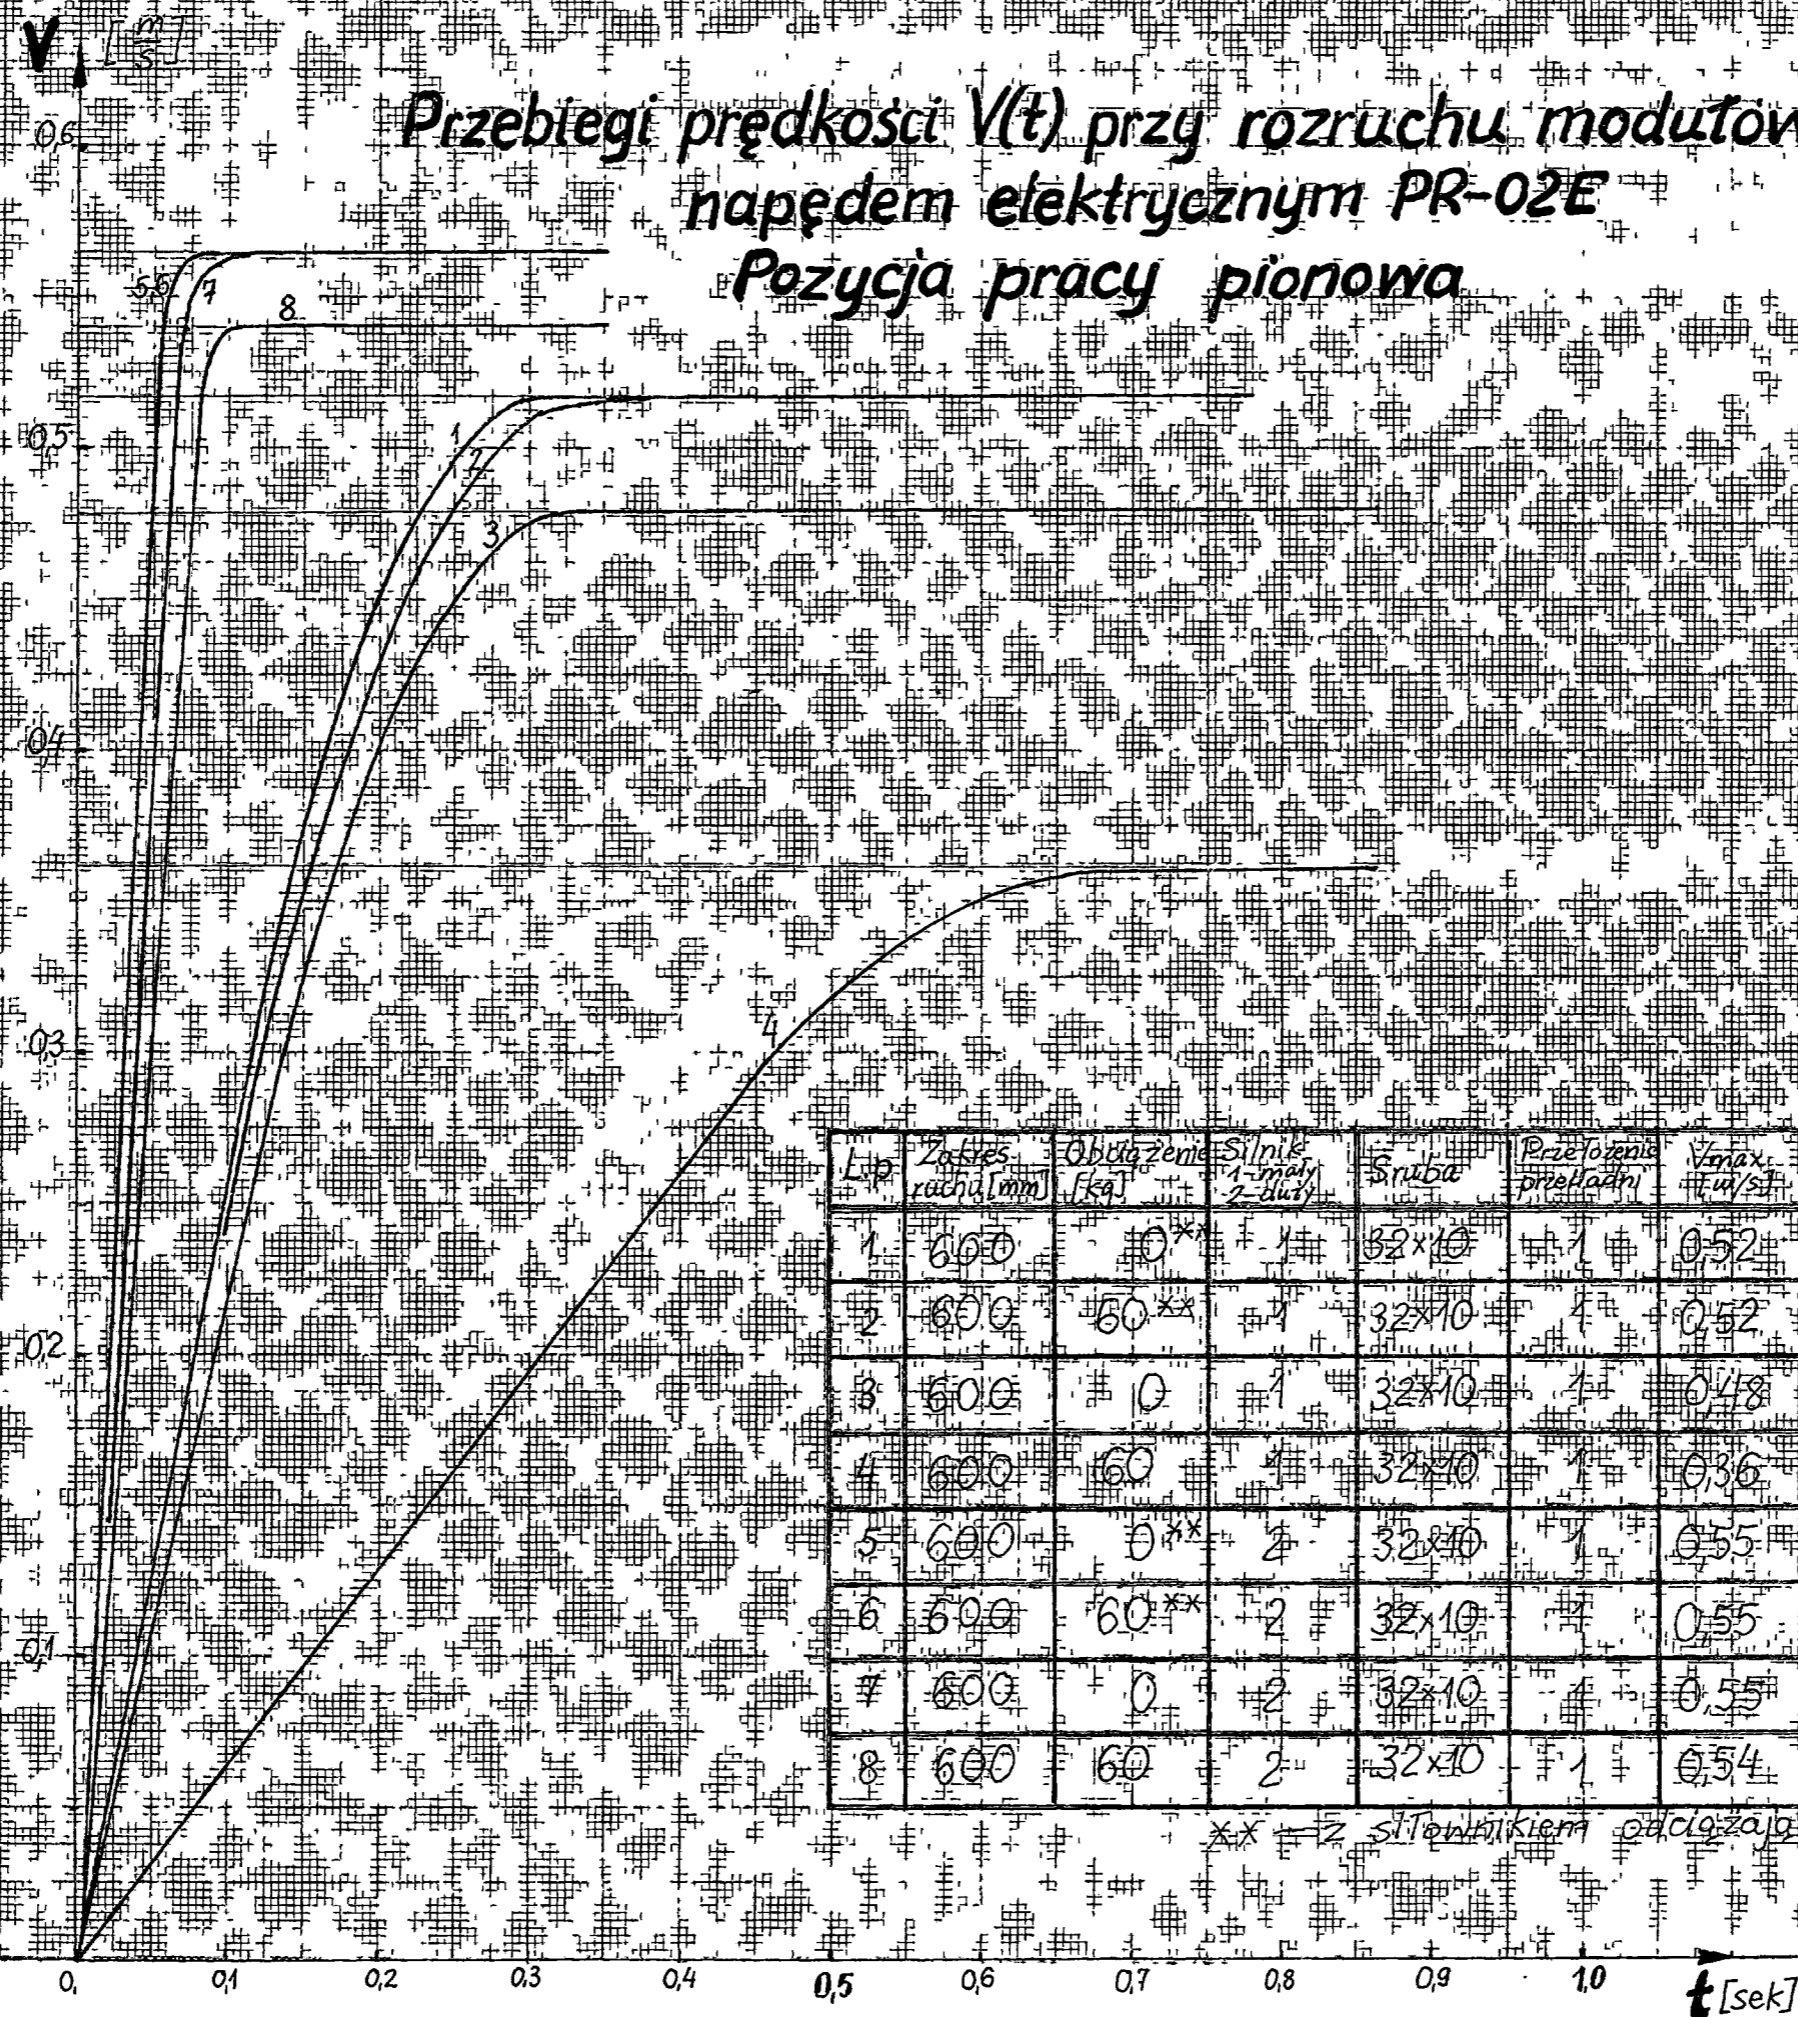 V [m/s]
Przebiegi prędkości V(t) przy rozruchu modułów
napędem elektrycznym PR-02E
Pozycja pracy pionowa
0,6
5,6 7
8
0,5
1
2
3
0,4
0,3
4
0,2
0,1
L.p Zakres ruchu [mm] Obciążenie [kg] Silnik 1-mały 2-duży Śruba Przełożenie przekładni Vmax. [m/s]
1 600 0** 1 32×10 1 0,52
2 600 60** 1 32×10 1 0,52
3 600 0 1 32×10 1 0,48
4 600 60 1 32×10 1 0,36
5 600 0** 2 32×10 1 0,55
6 600 60** 2 32×10 1 0,55
7 600 0 2 32×10 1 0,55
8 600 60 2 32×10 1 0,54
** - z siłownikiem odciążają
0, 0,1 0,2 0,3 0,4 0,5 0,6 0,7 0,8 0,9 1,0
t [sek]